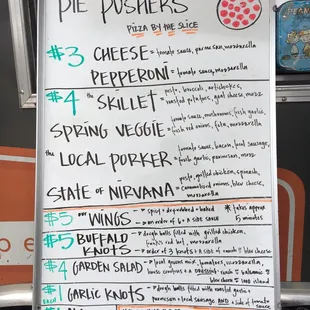 PIE PUSHERS
PIZZA BY THE SLICE
#3 CHEESE = tomato sauce, parmesan, mozzarella
PEPPERONI = tomato sauce, mozzarella
#4 the SKILLET = pesto, broccoli, artichokes,
roasted potatoes, goat cheese, mozz
SPRING VEGGIE = tomato sauce, mushrooms, fresh garlic,
fresh red onions, feta, mozzarella
the LOCAL PORKER = tomato sauce, bacon, local sausage,
fresh garlic, parmesan, mozz
STATE of NIRVANA = pesto, grilled chicken, spinach,
caramelized onions, blue cheese,
mozzarella
#5 WINGS → spicy + dry-rubbed + baked
→ an order of 6 + a side sauce
* takes approx
15 minutes
#5 BUFFALO KNOTS → dough balls filled with grilled chicken,
red hot, mozzarella
→ order of 3 knots + a side of ranch || blue cheese
#4 GARDEN SALAD → local greens mix, tomatoes, mozzarella,
house croutons + a DRESSING: ranch || balsamic ||
blue cheese || 1000 island
#1 each GARLIC KNOTS → dough balls filled with roasted garlic +
parmesan + local sausage AND a side of tomato
sauce